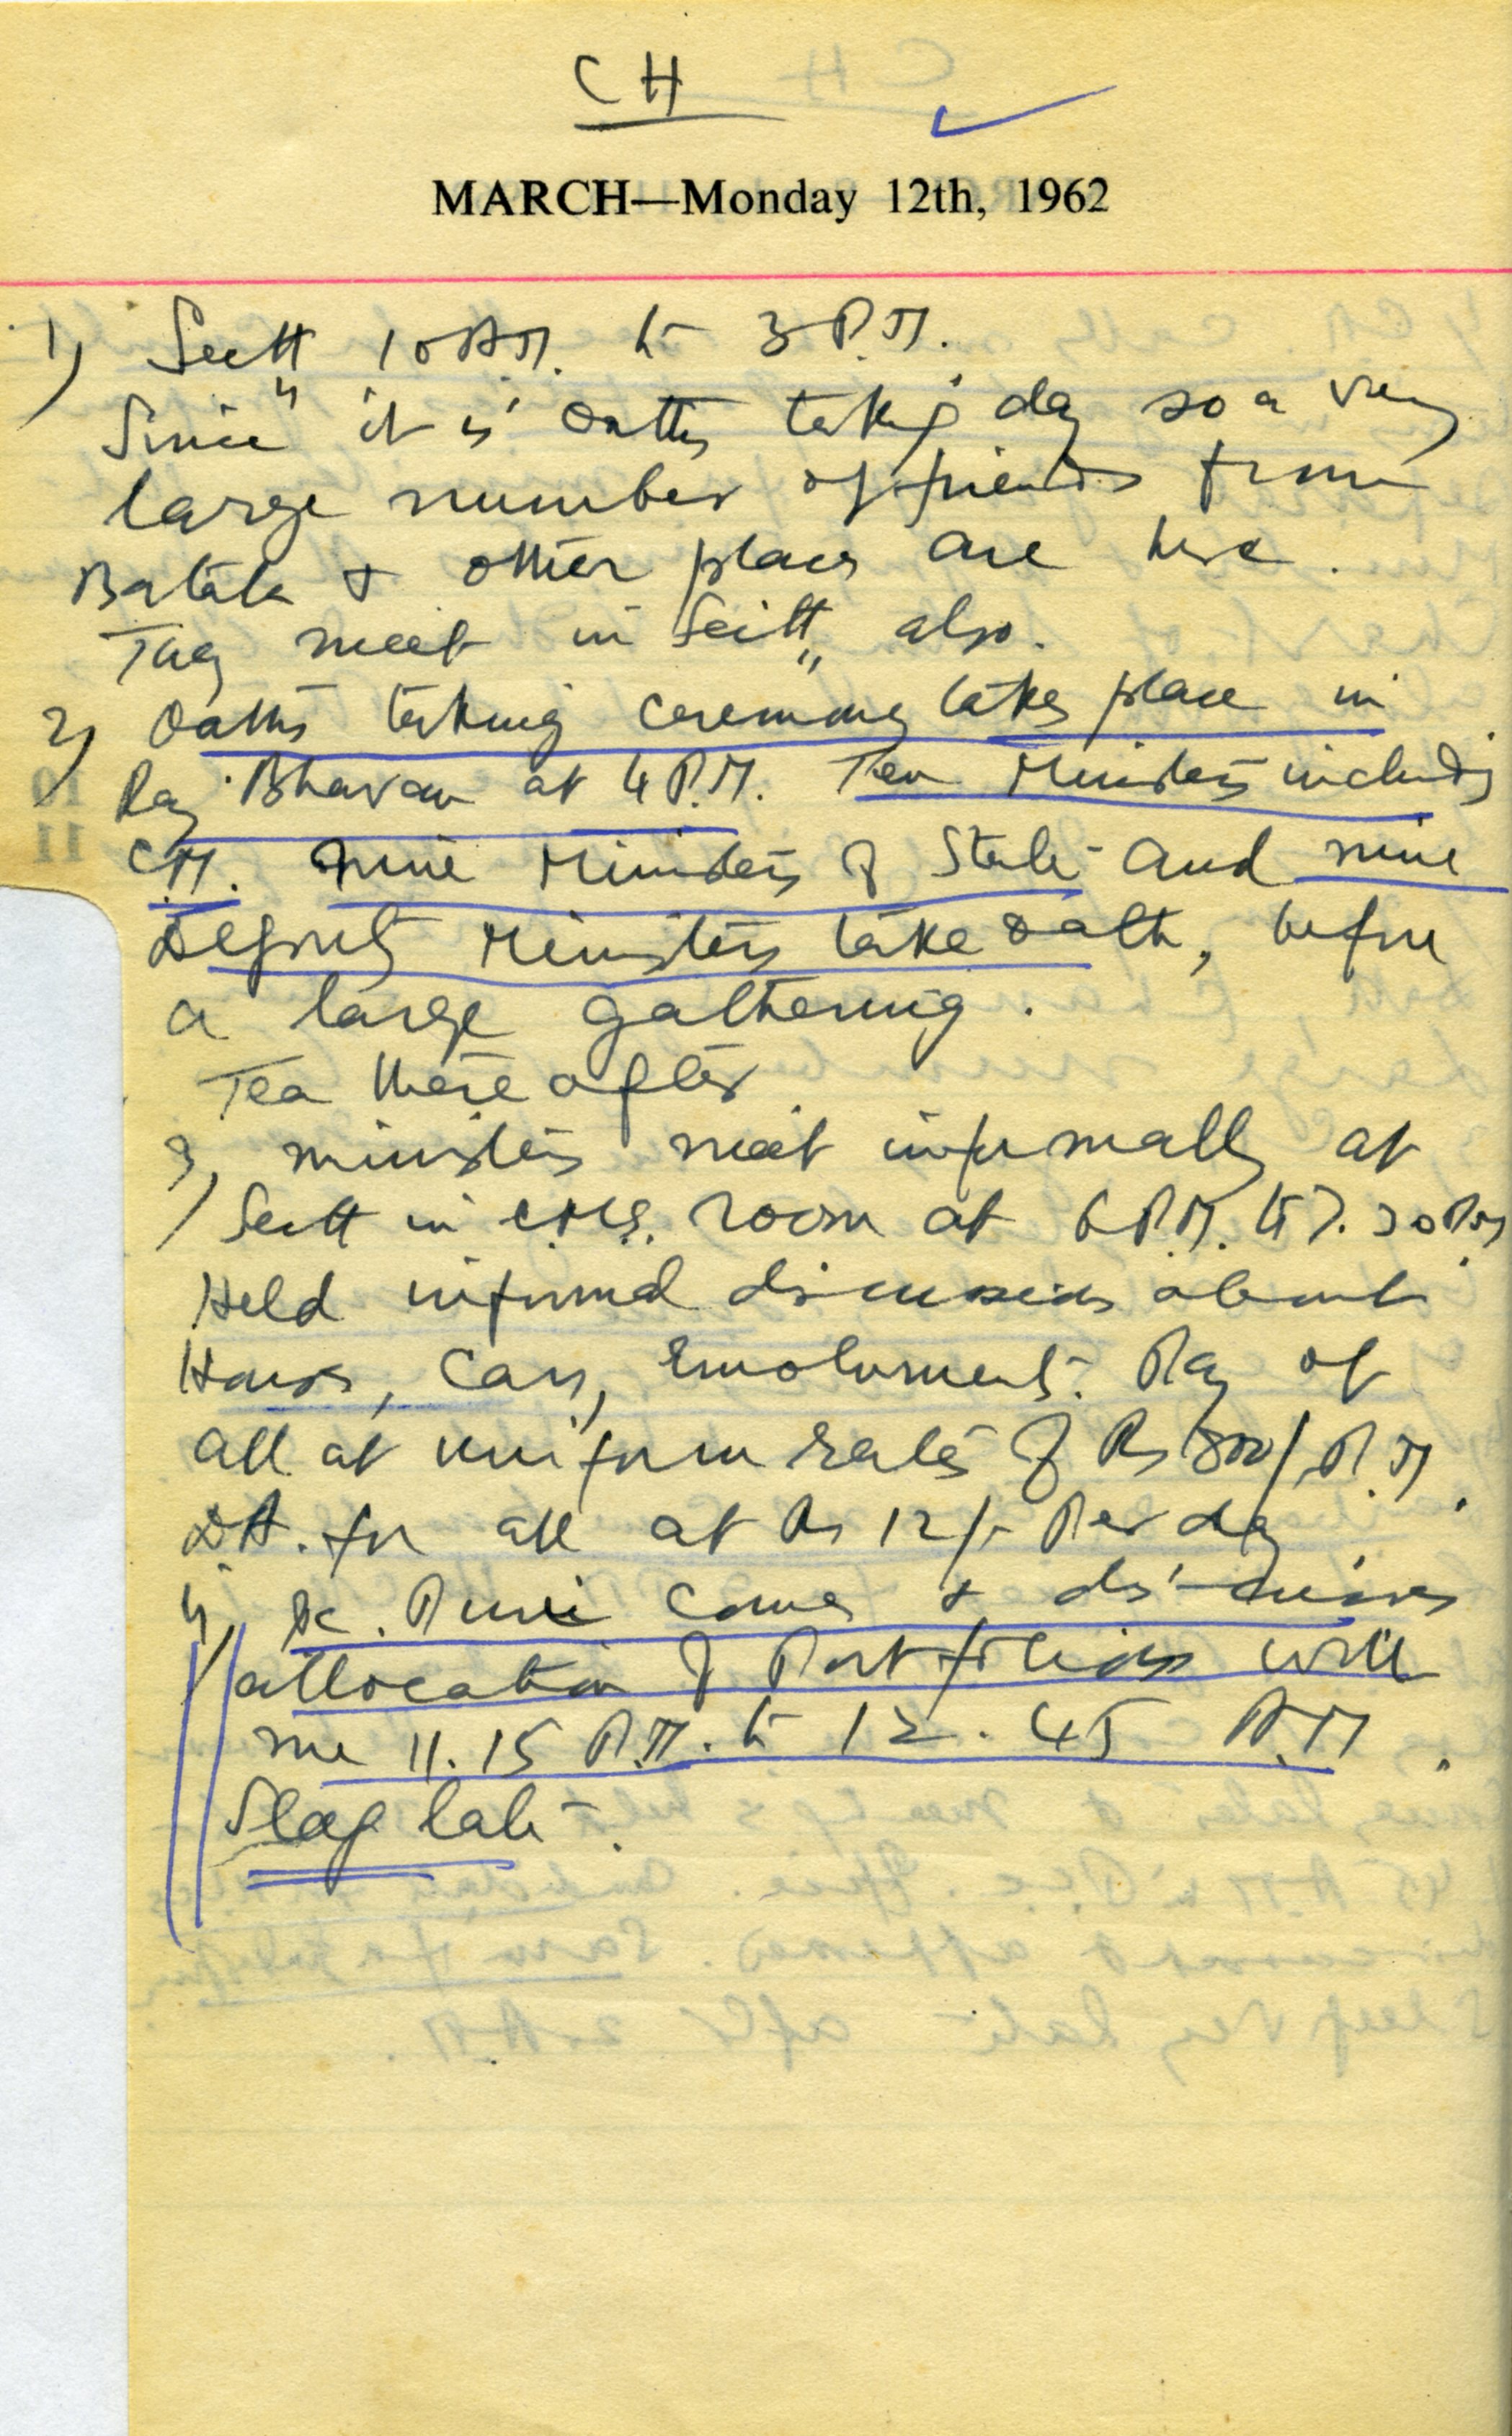 CH
MARCH—Monday 12th, 1962
1) Sectt 10 A.M. to 3 P.M.
Since it is oaths taking day so a very
large number of friends from
Batala & other places are here.
They meet in Sectt also.
2) Oaths taking ceremony takes place in
Raj Bhavan at 4 P.M. Ten Ministers including
C.M. nine Ministers of State and nine
Deputy Ministers take oath, before
a large gathering.
Tea there after
3) ministers meet informally at
Sectt in C.M's. room at 6 P.M. to 7.30 P.M
Held informal discussions about
Houses, Cars, Emoluments. Pay of
all at uniform rates of Rs 800/ P.M.
D.A. for all at Rs 12/- Per day
4) Puri comes & discusses
allocation of Portfolios with
me 11.15 P.M. to 12.45 A.M.
Sleep late.